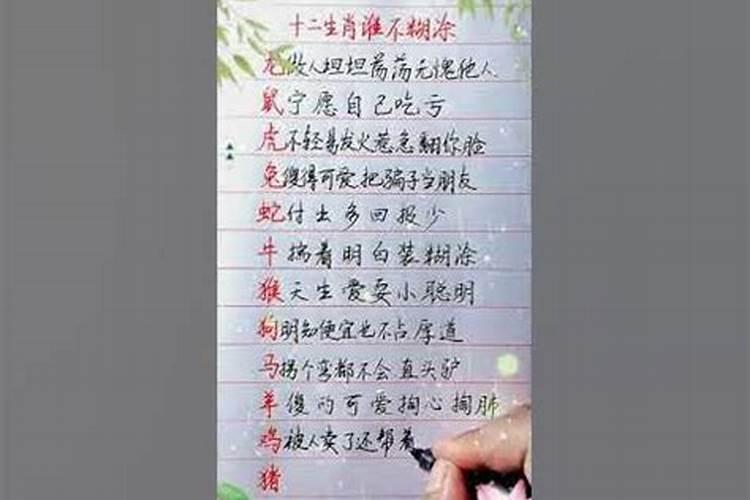 十二生肖谁不糊涂
龙做人坦坦荡荡无愧他人
鼠宁愿自己吃亏
虎不轻易发火惹急翻你脸
兔傻得可爱把骗子当朋友
蛇付出多回报少
牛揣着明白装糊涂
猴天生爱耍小聪明
狗明知便宜也不占厚道
马拐个弯都不会直头驴
羊傻的可爱掏心掏肺
鸡被人卖了还帮着
猪